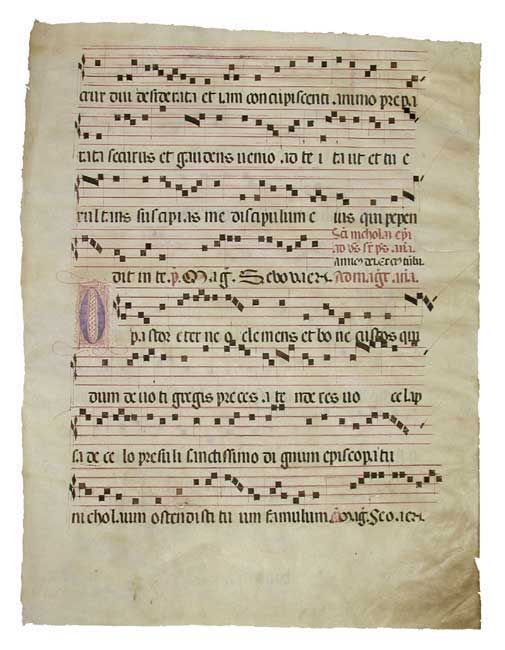 crux diu desiderata et iam concupiscenti animo prepa
rata securus et gaudens uenio ad te i ta ut et tu e
xultans suscipias me discipulum e ius qui pepen
Sci nicholai epi
dit in te. p. Mag. Seuouae. Ad mag. ana.
O pastor eterne o clemens et bo ne custos qui
dum deuo ti gregis preces a te nde res uo ce lap
sa de ce lo presuli sanctissimo di gnum episcopa tu
nicholaum ostendisti tu um famulum. Mag. Seouae.